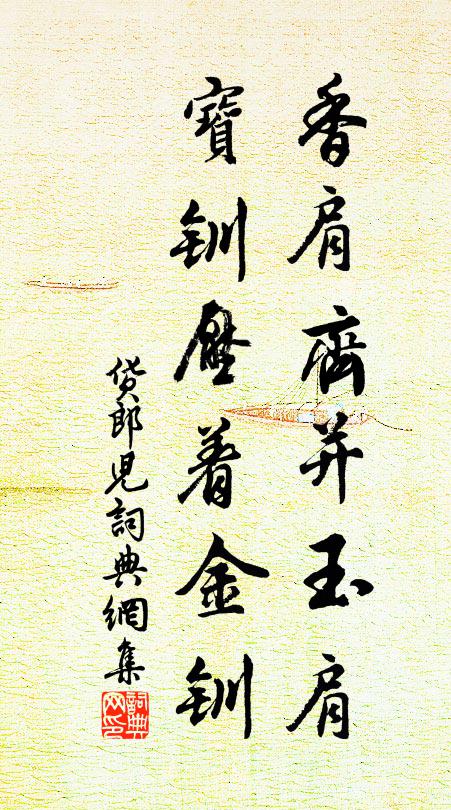 香肩齊并玉肩
寶釧壓着金釧
货郎児詞典網集
詞典网印